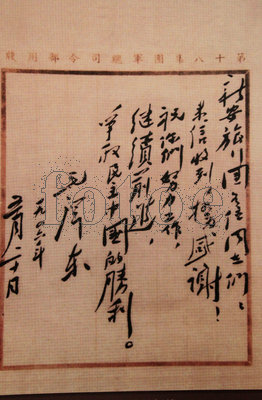 第十八集團軍總司令部用牋
新安旅行団各位同志們：
来信收到，極为感谢！
祝你們努力工作，
继續前進，
争取民主中國的勝利。
毛澤东
一九四六年
五月二十日
fotoe